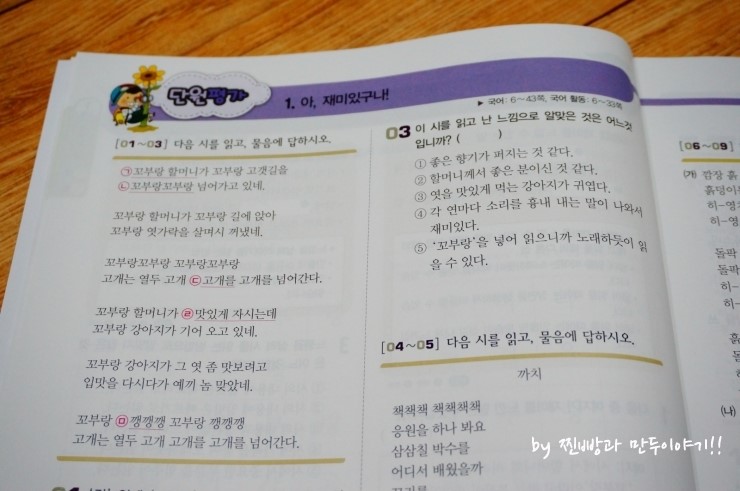 단원평가
1. 아, 재미있구나!
▶ 국어: 6~43쪽, 국어 활동: 6~33쪽
[01~03] 다음 시를 읽고, 물음에 답하시오.
㉠꼬부랑 할머니가 꼬부랑 고갯길을
㉡꼬부랑꼬부랑 넘어가고 있네.
꼬부랑 할머니가 꼬부랑 길에 앉아
꼬부랑 엿가락을 살며시 꺼냈네.
꼬부랑꼬부랑 꼬부랑꼬부랑
고개는 열두 고개 ㉢고개를 고개를 넘어간다.
꼬부랑 할머니가 ㉣맛있게 자시는데
꼬부랑 강아지가 기어 오고 있네.
꼬부랑 강아지가 그 엿 좀 맛보려고
입맛을 다시다가 예끼 놈 맞았네.
꼬부랑 ㉤깽깽깽 꼬부랑 깽깽깽
고개는 열두 고개 고개를 고개를 넘어간다.
03 이 시를 읽고 난 느낌으로 알맞은 것은 어느것
입니까? ( )
① 좋은 향기가 퍼지는 것 같다.
② 할머니께서 좋은 분이신 것 같다.
③ 엿을 맛있게 먹는 강아지가 귀엽다.
④ 각 연마다 소리를 흉내 내는 말이 나와서
재미있다.
⑤ ‘꼬부랑’을 넣어 읽으니까 노래하듯이 읽
을 수 있다.
[04~05] 다음 시를 읽고, 물음에 답하시오.
까치
책책책 책책책책
응원을 하나 봐요
삼삼칠 박수를
어디서 배웠을까
[06~09]
(가) 깜장 흙
흙덩이
히-영
히-
돌팍
돌팍
히-
히-
(나)
by 찐빵과 만두이야기!!